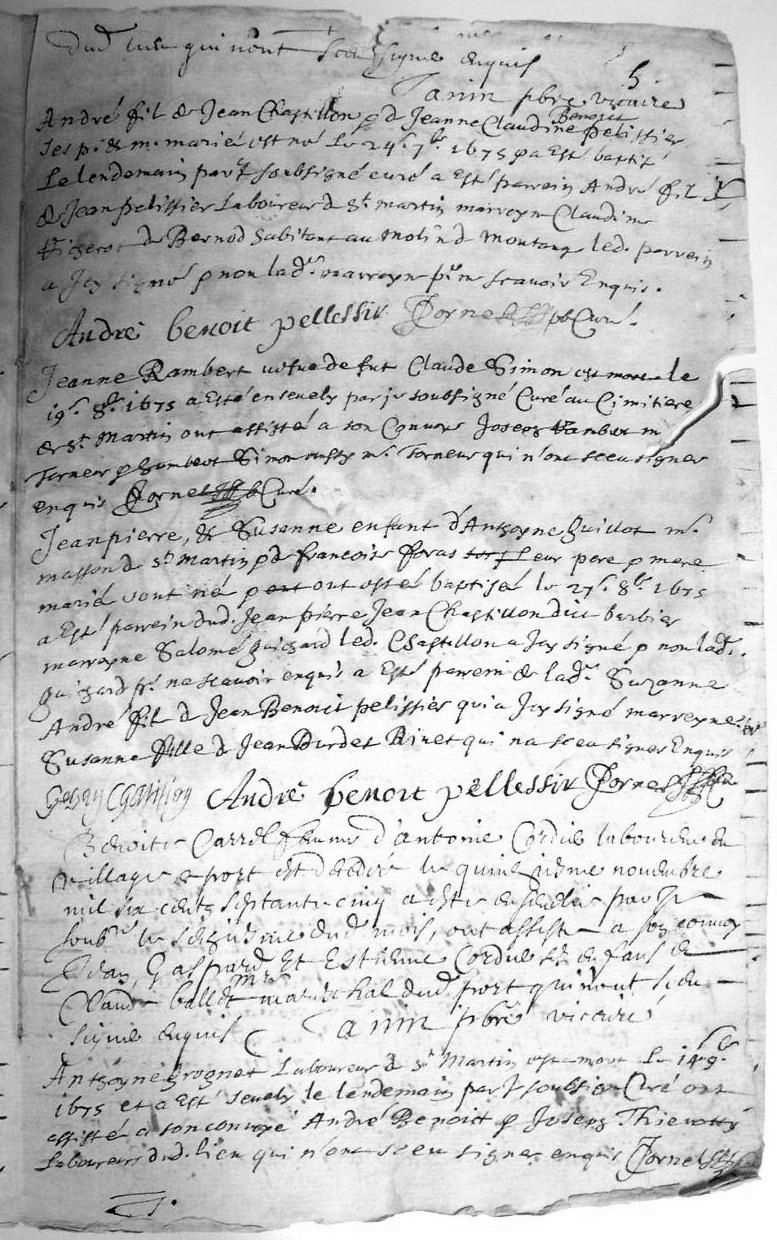 dud. lieu qui nont sceu signe enquis
Tanin pbre vicaire
André fil de Jean Chastillon p d Jeanne Claudine Benoict pelissier
ses p. & m. mariés est né le 24e. 7bre 1675 p a Esté baptizé
Le lendemain par J soubsigné curé a Esté parrein André fil
de Jean pelissier Laboureur d St martin marreyne Claudine
de Bernod habitant au Molin d Montanq led. parrein
a Icy signé p non lad. marreyne pr ne scavoir Enquis.
André benoit pellessir Jornet pb Curé.
Jeanne Rambert vefue de fut Claude Simon est morte le
19e. 8bre. 1675 a Esté enseuely par je soubsigné Curé au Cimitiere
de St Martin ont assisté a son Convoys Joseph Rambert m
Torneur p humbert Simon aussy me. Torneur qui n'ont sceu signer
enquis Jornet pb Curé.
Jeanpierre, & Susanne enfant d'Anthoyne Guillot me.
masson d St Martin p d francoise foras leur pere p mere
marié sont né p ont estes baptisés le 27e. 8bre 1675
a Esté parrein dud. Jean pierre Jean Chastillon dict barbier
marrayne Salomé Guichard led. Chastillon a Icy signé p non lad.
Guichard pr. ne scavoir enquis a Esté parrein de lad. Suzanne
André fil d Jean Benoict pelissier qui a Icy signé marreyne
Susanne fille d Jean Burdet Binet qui na sceu signer Enquis
Jehan Chatillon André benoit pellessir Jornet
Benoite Carrel femme d'antoine Cordier laboureur du
village & port est decedée le quinziesme novembre
mil six cents septante cinq a este ensevelie par Je
soubne le seiziesme dud. mois, ont assiste a son convoy
Jean, Gaspard Et Estienne Cordier ses enfans &
Claude ballet mre mareschal dud. port qui nont sceu
signe enquis Tanin pbre vicaire
Anthoyne grognet Laboureur d St Martin est mort Le 14e 9bre
1675 et a Esté seuely le lendemain par J soubsigné Curé ont
assisté a son convoyé André Benoict p Joseph Thievon
Laboureurs dud. lieu qui n'ont sceu signer enquis Jornet